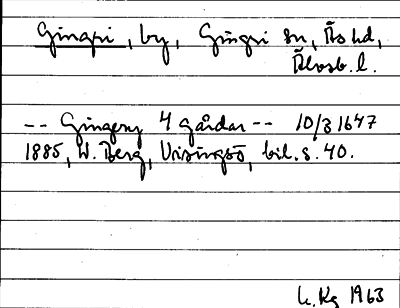 Gingri, by, Gingri sn, Ås hd,
Älvsb. l.
-- Gingery 4 gårdar -- 10/3 1647
1885, W. Berg, Visingsö, bil. s. 40.
L. Kg 1963